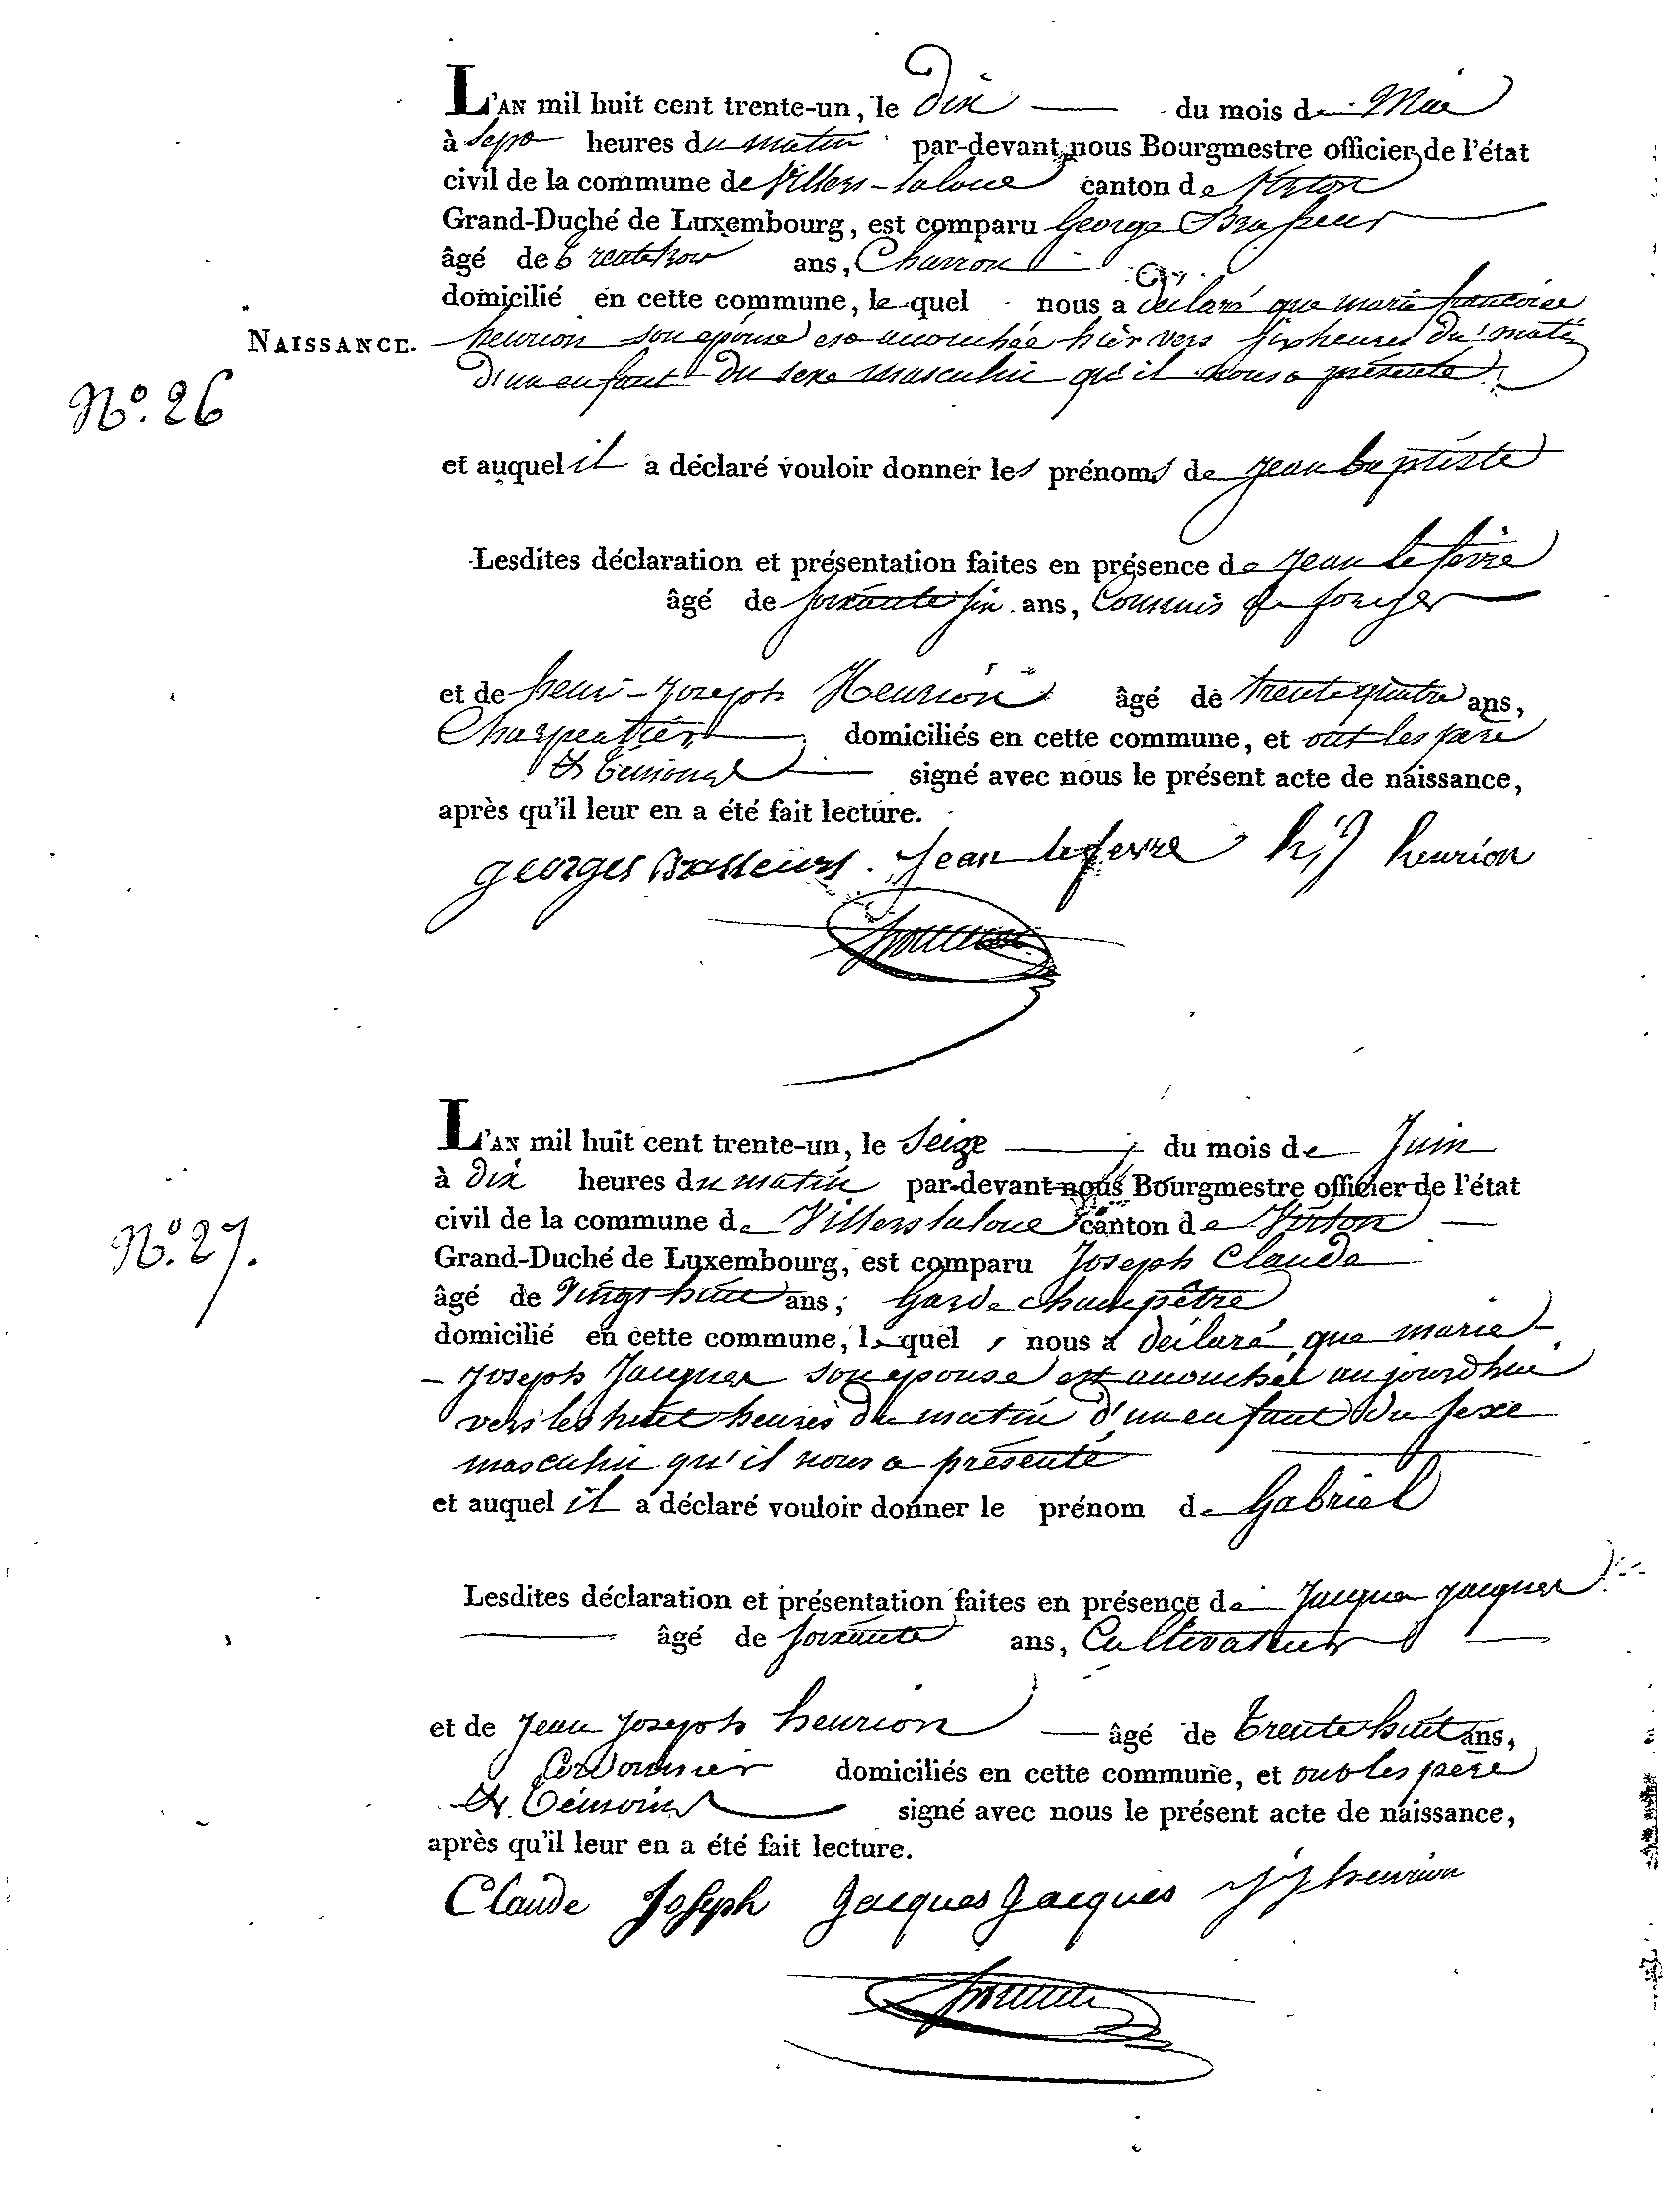 L'AN mil huit cent trente-un, le dix du mois de Mai
à sept heures du matin par-devant nous Bourgmestre officier de l'état
civil de la commune de Villers-laloue canton de Virton
Grand-Duché de Luxembourg, est comparu George Brasseur
âgé de trente trois ans, Charron
domicilié en cette commune, lequel nous a déclaré que marie francoise
NAISSANCE. henrion son epouse est accouchée hièr vers six heures du matin
d'un enfant du sexe masculin qu'il nous a présenté
N.º 26
et auquel il a déclaré vouloir donner les prénoms de jean baptiste
Lesdites déclaration et présentation faites en présence de jean lefevre
âgé de soixante six ans, Commis de
et de henri-joseph Henrion âgé de trente quatre ans,
Charpentier domiciliés en cette commune, et ont les père
& témoins signé avec nous le présent acte de naissance,
après qu'il leur en a été fait lecture.
georges Brasseurs. Jean lefevre h,j henrion
L'AN mil huit cent trente-un, le Seize du mois de Juin
à dix heures du matin par-devant nous Bourgmestre officier de l'état
N.º 27. civil de la commune de Villerslaloue canton de Virton
Grand-Duché de Luxembourg, est comparu Joseph Claude
âgé de Vingt huit ans, Garde champêtre
domicilié en cette commune, lequel nous a déclaré que marie
- Joseph Jacques son epouse est accouchée aujourdhui
vers les huit heures du matin d'un enfant du sexe
masculin qu'il nous a présenté
et auquel il a déclaré vouloir donner le prénom de Gabriel
Lesdites déclaration et présentation faites en présence de Jacques jacques
âgé de soixante ans, Cultivateur
et de jean joseph henrion âgé de trente huit ans,
Cordonnier domiciliés en cette commune, et ont les père
& témoins signé avec nous le présent acte de naissance,
après qu'il leur en a été fait lecture.
Claude Joseph Jacques Jacques jj henrion